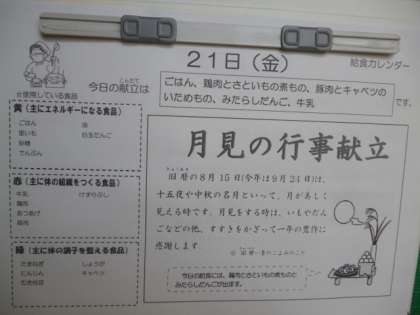 21日（金）
給食カレンダー
今日の献立は
こんだて
ごはん、鶏肉とさといもの煮もの、豚肉とキャベツの
いためもの、みたらしだんご、牛乳
です。
☆使用している食品
黄（主にエネルギーになる食品）
ごはん
油
里いも
白玉だんご
砂糖
でんぷん
赤（主に体の組織をつくる食品）
牛乳
けずりぶし
鶏肉
あつあげ
豚肉
緑（主に体の調子を整える食品）
たまねぎ
しょうが
にんじん
キャベツ
月見の行事献立
旧暦の8月15日(今年は9月24日)は、
十五夜や中秋の名月といって、月が美しく
見える時です。月見をする時は、いもやだん
ごなどの他、すすきをかざって一年の豊作に
感謝します。
今日の給食には、鶏肉とさといもの煮ものと
みたらしだんごが出ます。